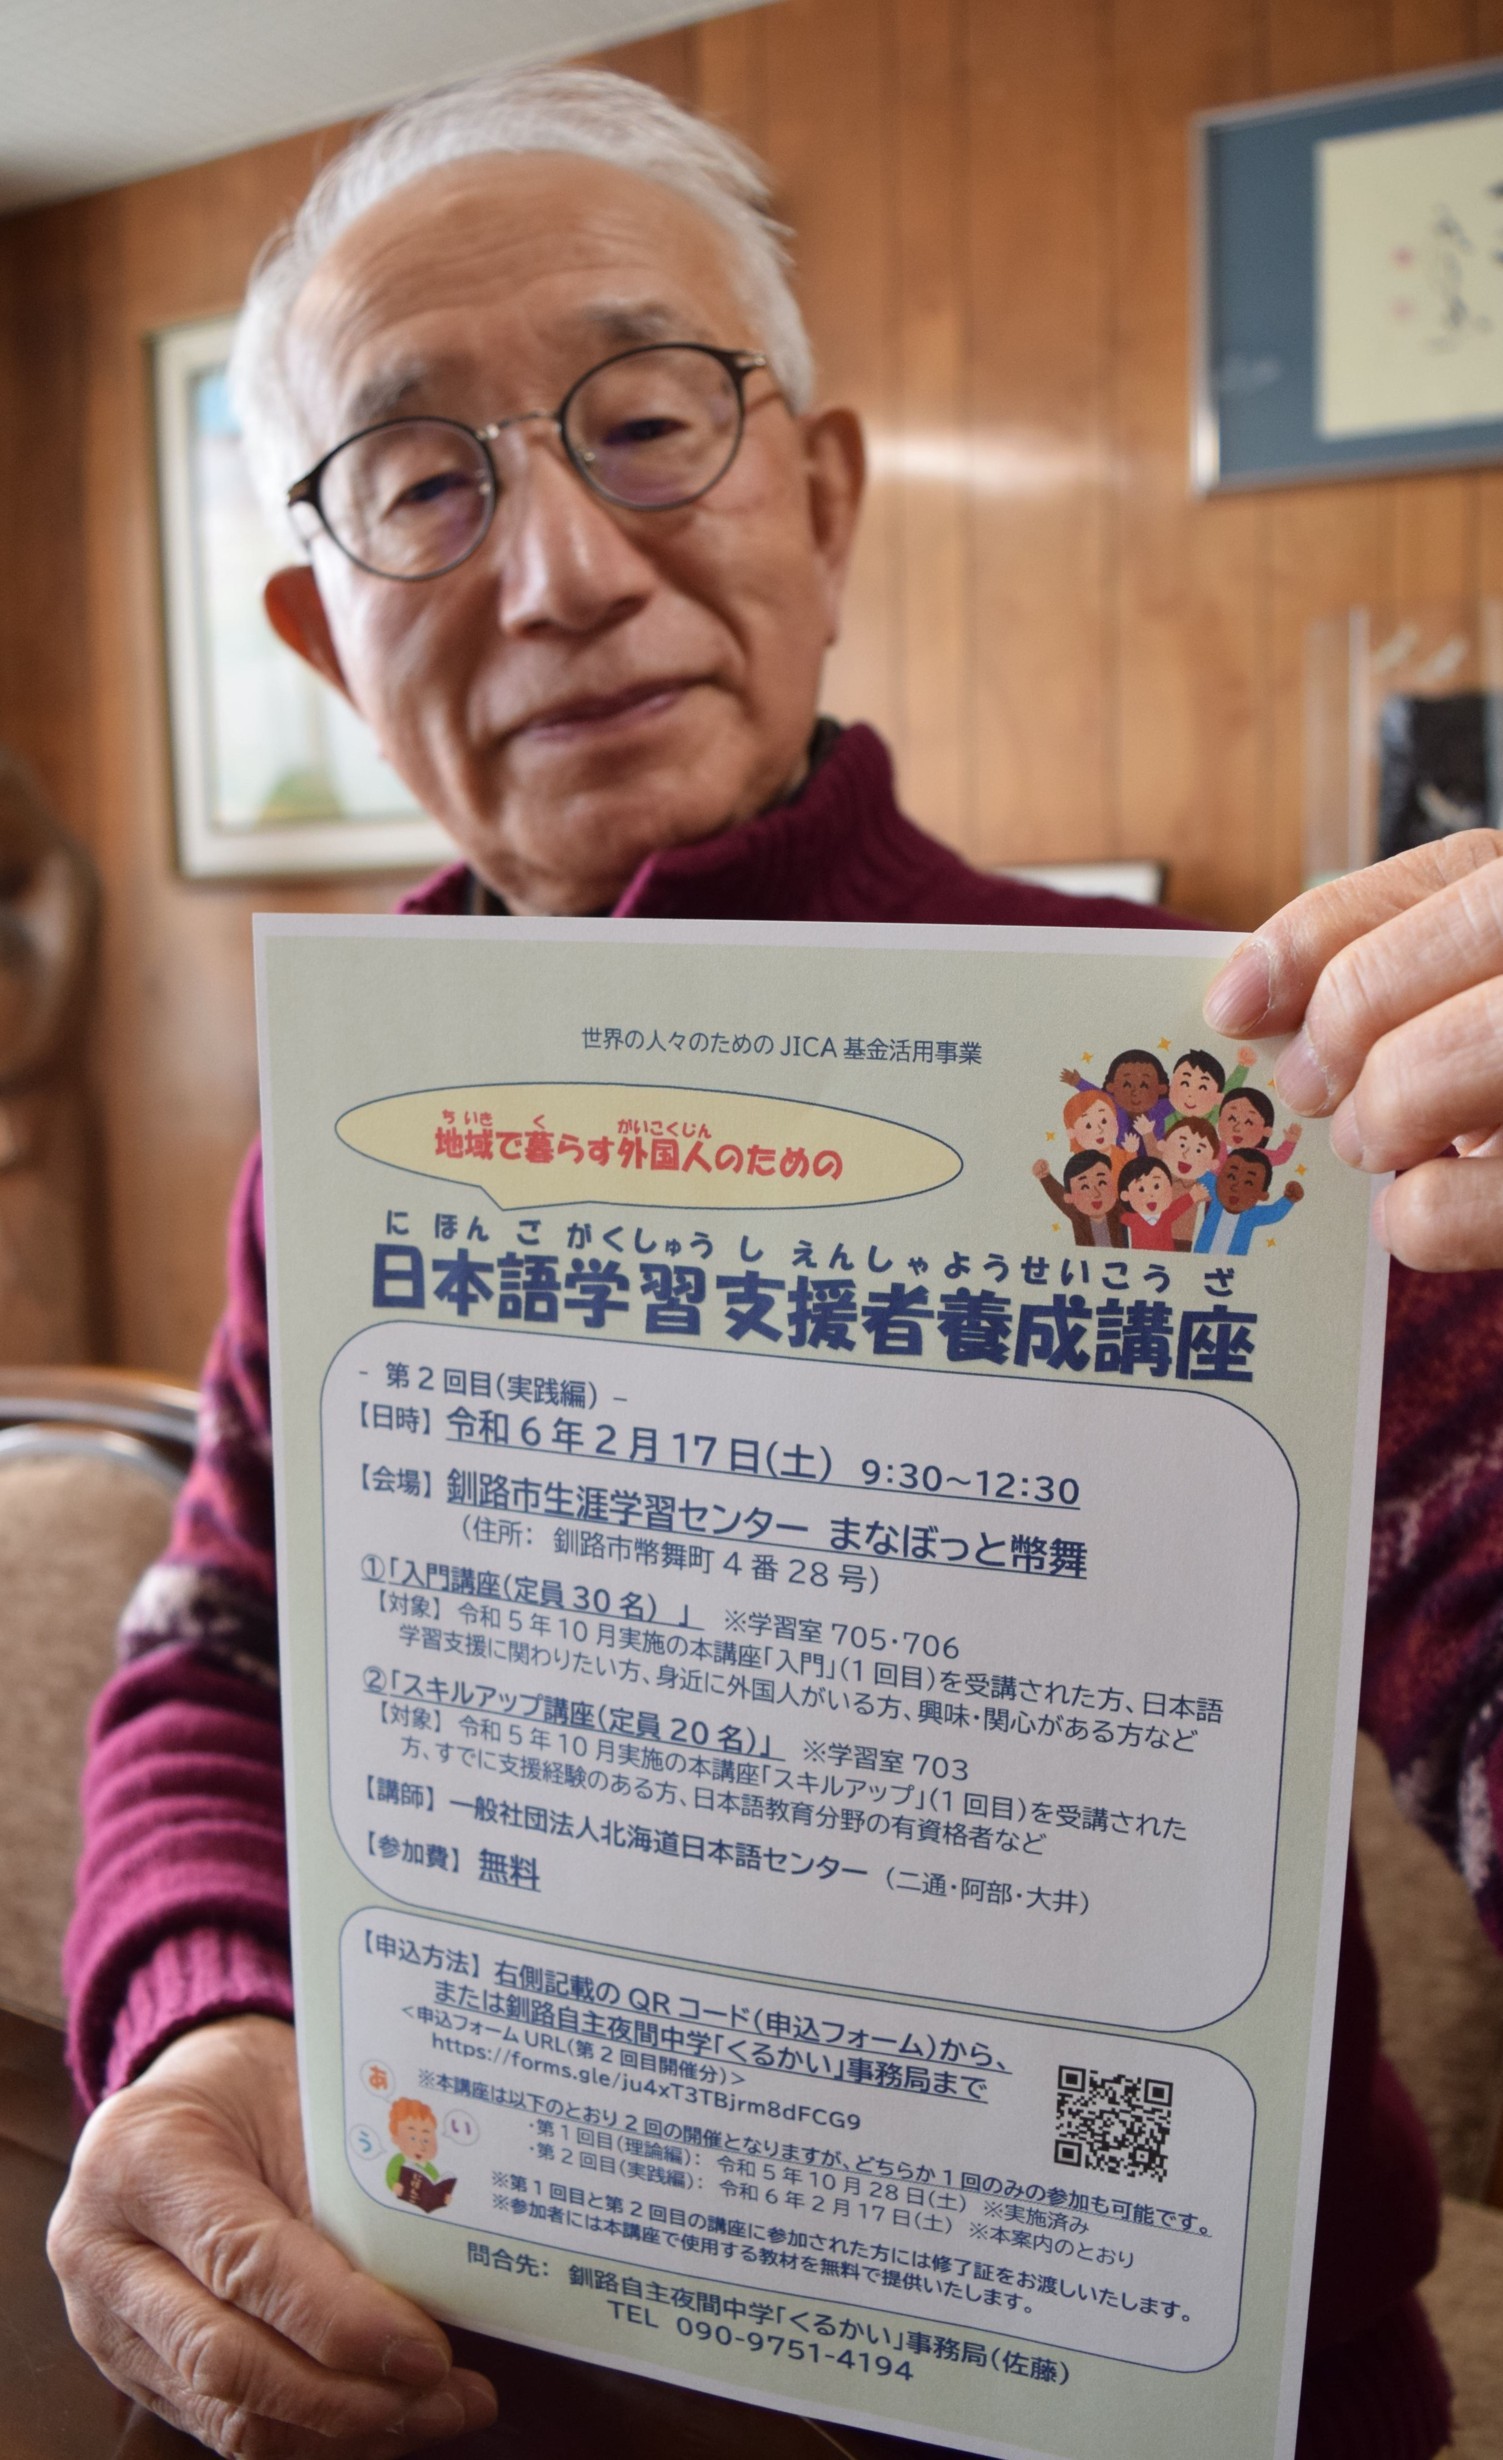 世界の人々のためのJICA基金活用事業
ちいき く がいこくじん
地域で暮らす外国人のための
にほんごがくしゅうしえんしゃようせいこうざ
日本語学習支援者養成講座
- 第2回目(実践編) –
【日時】令和6年2月17日(土) 9:30~12:30
【会場】釧路市生涯学習センター まなぼっと幣舞
(住所: 釧路市幣舞町4番28号)
①「入門講座(定員30名) 」 ※学習室705・706
【対象】令和5年10月実施の本講座「入門」(1回目)を受講された方、日本語
学習支援に関わりたい方、身近に外国人がいる方、興味・関心がある方など
②「スキルアップ講座(定員20名)」 ※学習室703
【対象】令和5年10月実施の本講座「スキルアップ」(1回目)を受講された
方、すでに支援経験のある方、日本語教育分野の有資格者など
【講師】一般社団法人北海道日本語センター (二通・阿部・大井)
【参加費】無料
【申込方法】右側記載のQRコード(申込フォーム)から、
または釧路自主夜間中学「くるかい」事務局まで
<申込フォームURL(第2回目開催分)>
https://forms.gle/ju4xT3TBjrm8dFCG9
※本講座は以下のとおり2回の開催となりますが、どちらか1回のみの参加も可能です。
・第1回目(理論編): 令和5年10月28日(土) ※実施済み
・第2回目(実践編): 令和6年2月17日(土) ※本案内のとおり
※第1回目と第2回目の講座に参加された方には修了証をお渡しいたします。
※参加者には本講座で使用する教材を無料で提供いたします。
あ
い
う
にほんご
問合先: 釧路自主夜間中学「くるかい」事務局(佐藤)
TEL 090-9751-4194